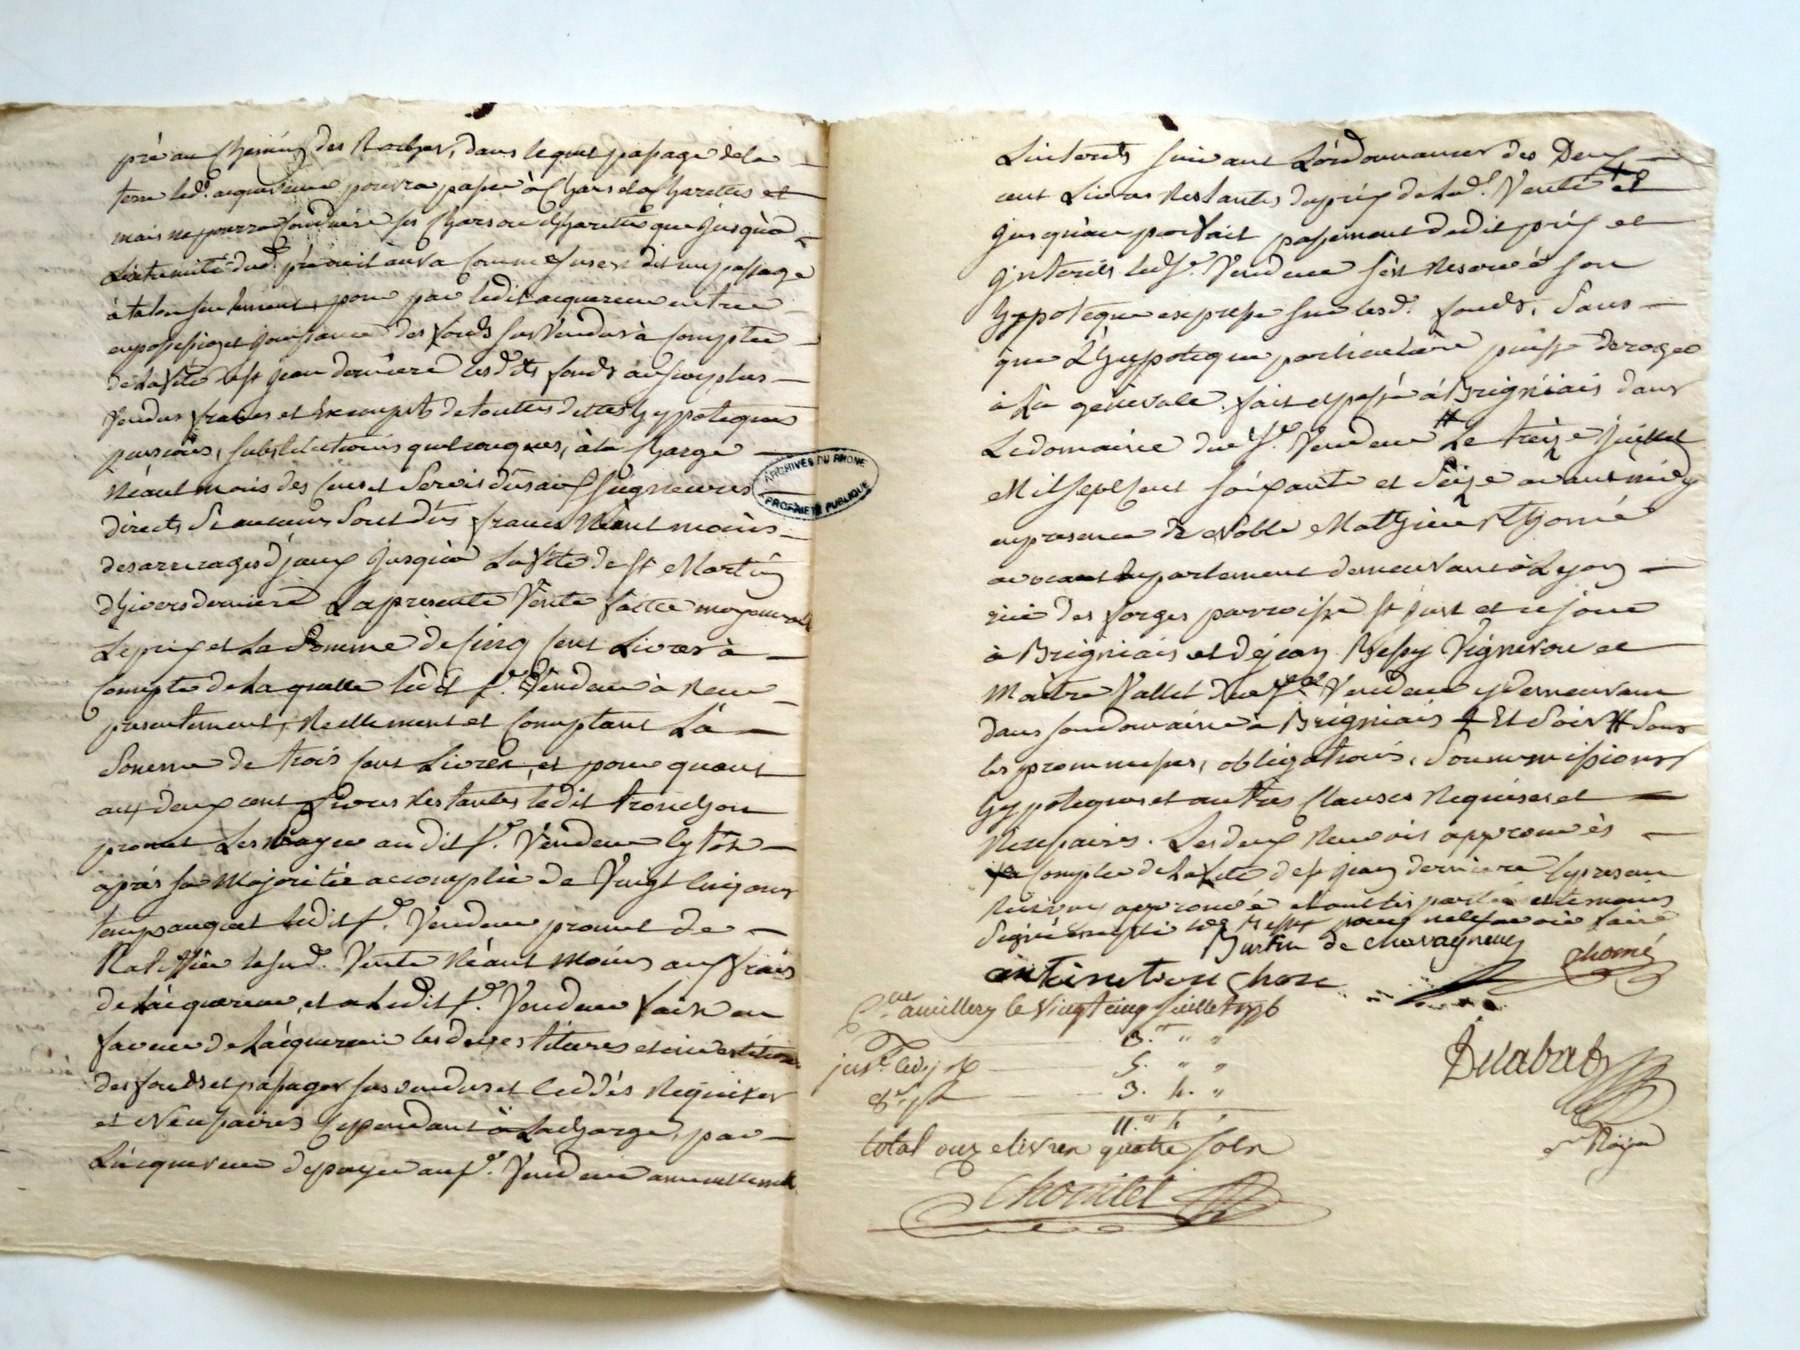 pré au chemin des Roches, dans lequel passage de la
terre led. acquereur pourra passer à Chars et à Charettes et
mais ne pourra conduire ses Chars ou Charettes que jusqu'à
L'extremité dud. pré
à talon seulement, pour par ledit acquereur entrer
en possession et jouissance des fonds sus vendus à compter
de La fête de st jean derniere lesdits fonds au surplus
vendus francs et Exempts de toutes dettes hypoteques
pensions, substitutions quelconques, à la charge
Néant mois des Cens et Servis dus aux Seigneurs
directs Si aucuns Sont dus francs Néant moins
des arrerages d'jceux jusqu'à La fête de st Martin
d'hivers derniere La presente Vente faitte moyennant
Le prix et La Somme de Cinq Cent Livres à
Compte de La quelle ledit sr. Vendeur à Receu
presentement, Reellement et Comptant La
Somme de trois Cent Livres, et pour quant
aux deux cent Livres Restantes ledit tronchon
promet Les Payer au dit sr. Vendeur sytôt
après sa Majoritée accomplie de Vingt Cinq ans
temps auquel ledit sr. Vendeur promet de
Ratiffier lasusd. Vente Néant Moins aux frais
de L'acquereur, et a Ledit sr. Vendeur fait en
faveur de L'acquereur les devestitures et investitures
des fonds et passages sus vendus et ceddés Requises
et Necessaires Cependant à La charge, par
L'acquereur de payer au sr. Vendeur annuellement
L'interets suivant L'ordonnance des Deux
cent Livres Restantes du prix de Lad. Vente et
jusqu'au parfait payement dudit prix et
jnterêts led. sr. Vendeur s'est Reservé son
hypoteque expresse sur lesd. fonds, Sans
que L'hypoteque particuliere puisse deroger
à La generale. fait et passé à Brigniais dans
Le domaine du sr. Vendeur # Le treize juillet
Mil sept Cent soixante et Seize avant midy
en presence de Noble Mathieu Thomé
avocat en parlement demeurant à Lyon
rue des forges parroisse st just et
à Brigniais et de jean Bessy Vigneron et
Maitre Vallet dud sr. Vendeur y demeurant
dans son domaine à Brigniais + Et Soir # Sous
les prommesses, obligations, Soummissions
hypoteques et autres Clauses Requises et
Necessaires. Les deux Renvois approuvés
à Compter de La fête de st jean derniere le present
Renvoy approuvé et ont les parties et temoins
Signé excepté led. Bessy pour ne sçavoir faire
Burtin de chavagneux
antine tronchon
thomé
Cé. au illery le Vingt cinq juillet 1776
3. " "
5. " "
8s. pl. 3. 4. "
11. " 4
total onze Livres quatre sols
Chomilet
Delabat
nre Royal
ARCHIVES DU RHONE
PROPRIÉTÉ PUBLIQUE